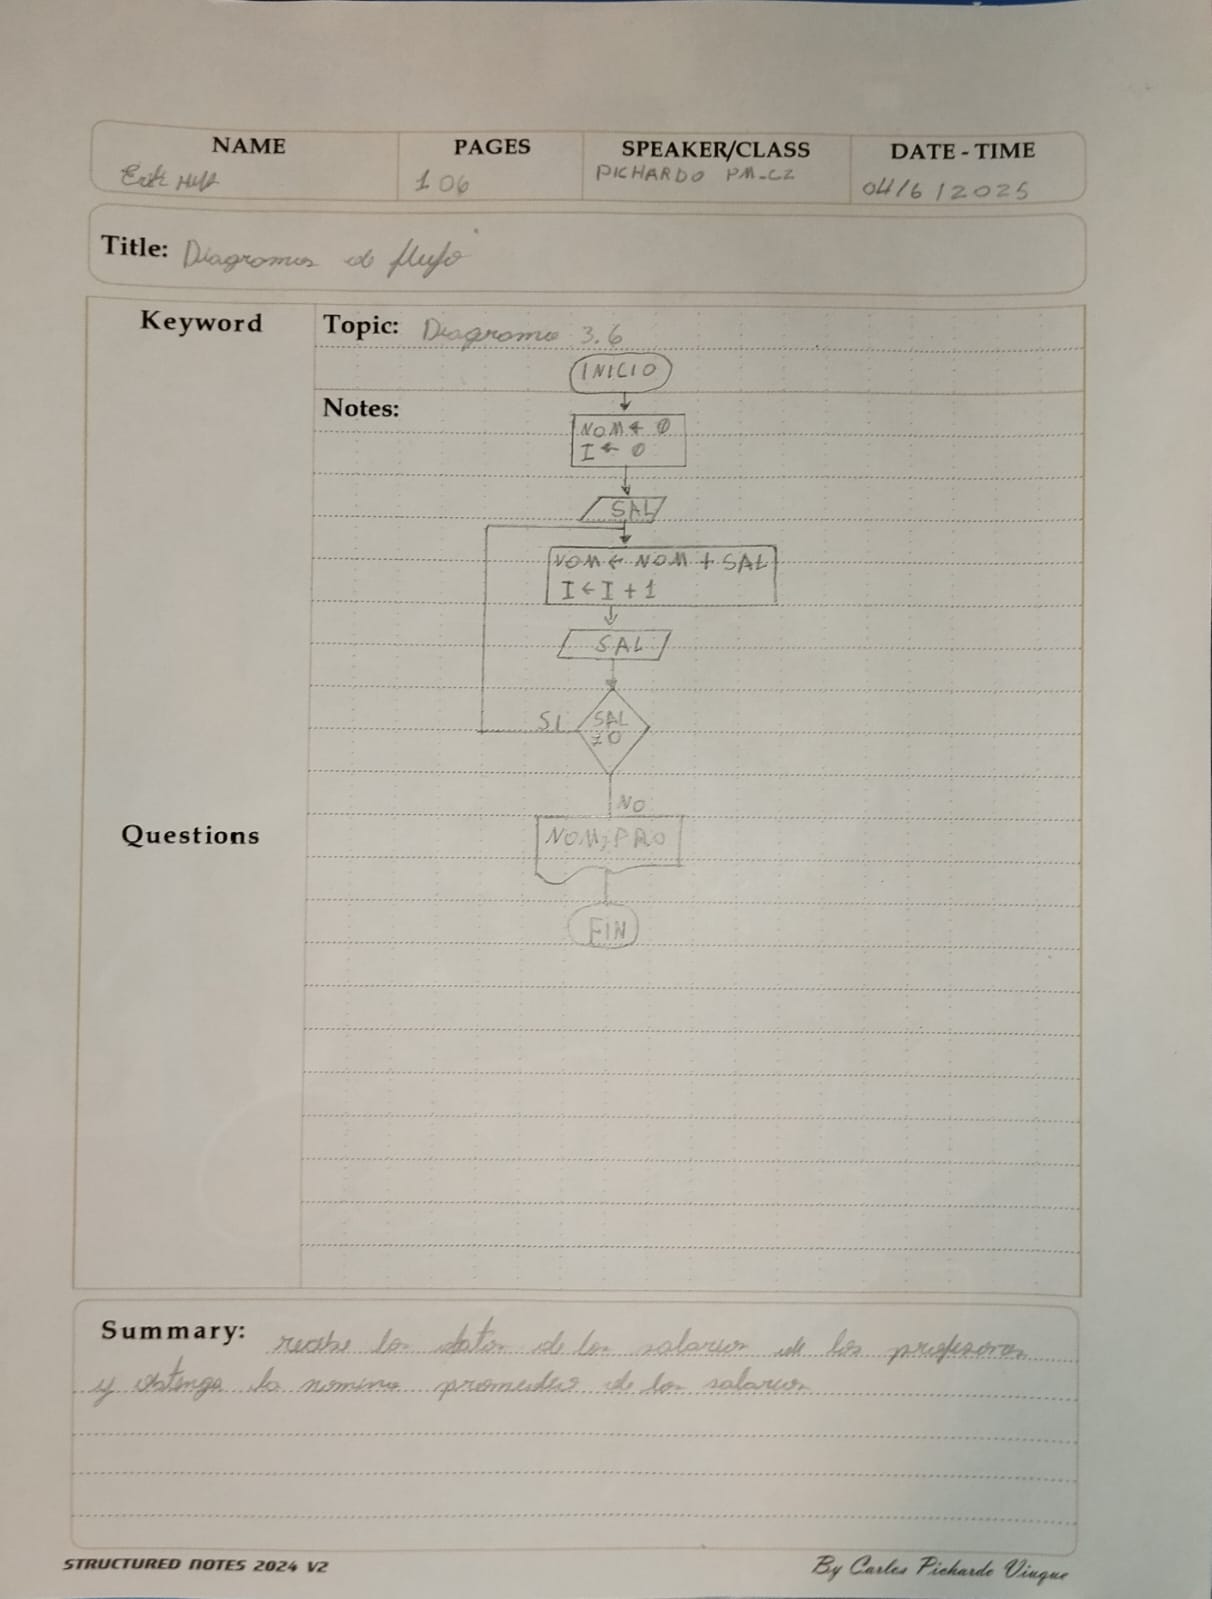 NAME PAGES SPEAKER/CLASS DATE - TIME
Erik 106 PICHARDO PM-CZ 04/6/2025
Title: Diagramas de flujo
Keyword
Topic: Diagrama 3.6
INICIO
Notes:
NOM ← 0
I ← 0
SAL
NOM ← NOM + SAL
I ← I + 1
SAL
SI
SAL
≠0
NO
Questions
NOM, PRO
FIN
Summary: recibe los datos de los salarios de los profesores
y obtenga la nomina promedio de los salarios
STRUCTURED NOTES 2024 V2
By Carlos Pichardo Viuque